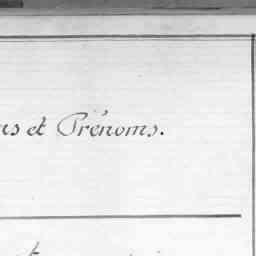 ms et Prénoms.